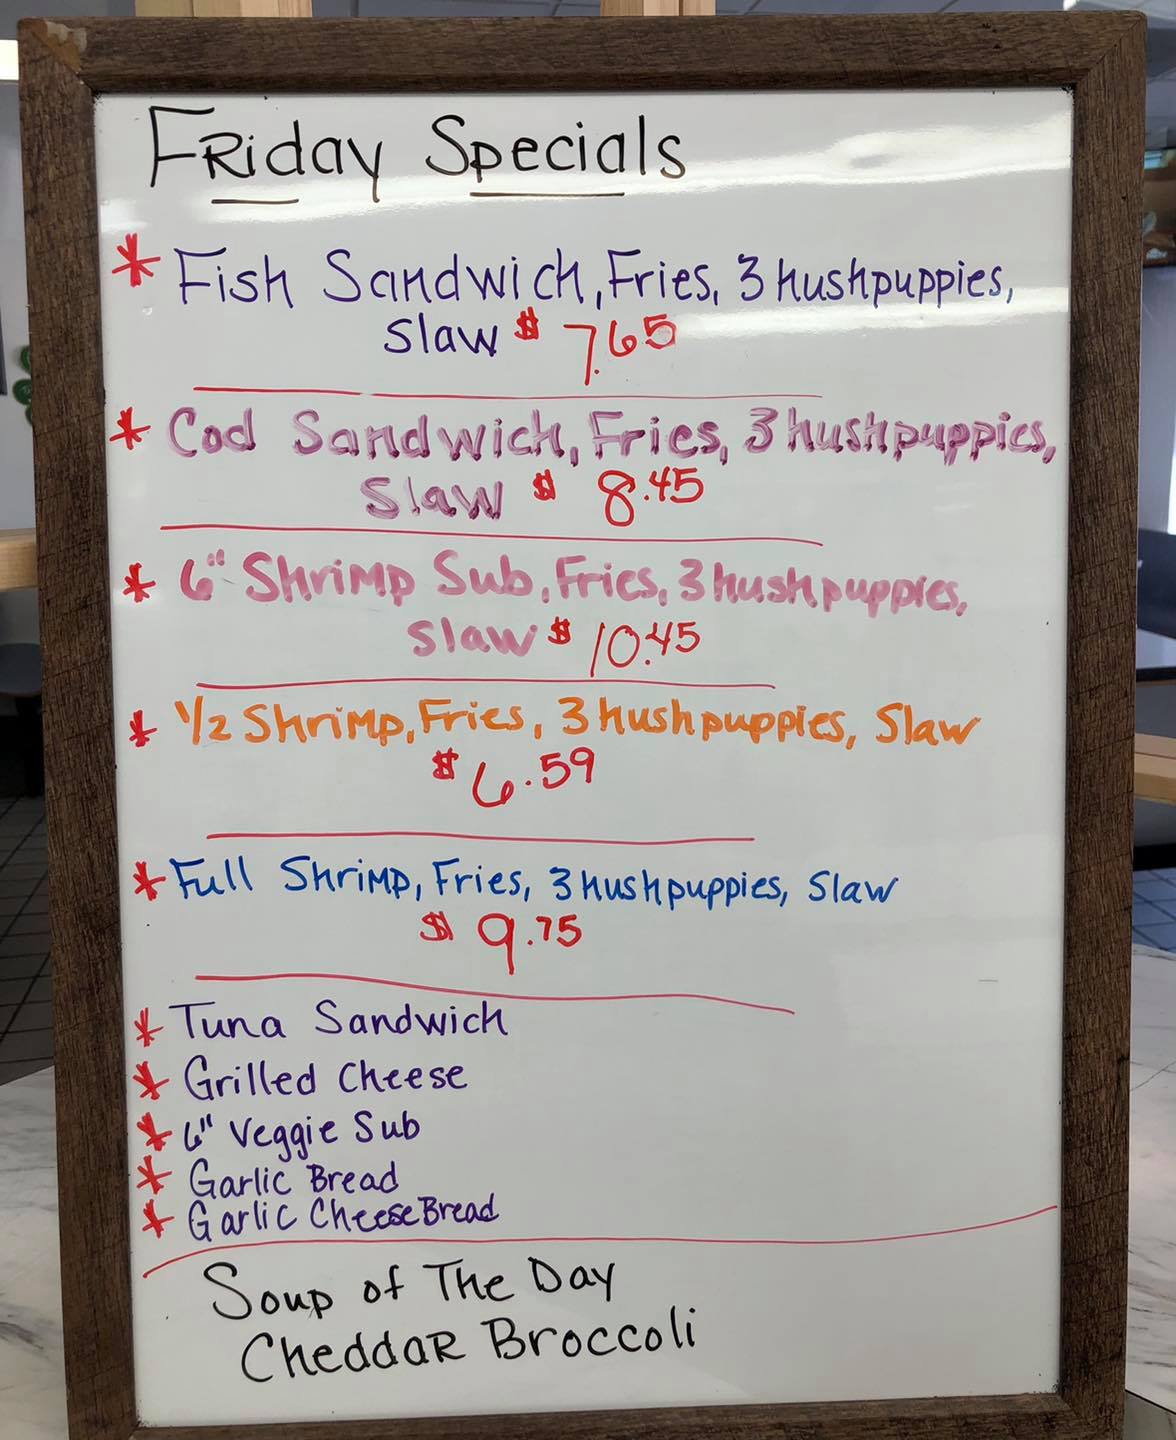 Friday Specials
* Fish Sandwich, Fries, 3 hushpuppies,
Slaw $ 7.65
* Cod Sandwich, Fries, 3 hushpuppies,
Slaw $ 8.45
* 6" Shrimp Sub, Fries, 3 hushpuppies,
Slaw $ 10.45
* 1/2 Shrimp, Fries, 3 hushpuppies, Slaw
$ 6.59
* Full Shrimp, Fries, 3 hushpuppies, Slaw
$ 9.75
* Tuna Sandwich
* Grilled Cheese
* 6" Veggie Sub
* Garlic Bread
* Garlic Cheese Bread
Soup of The Day
Cheddar Broccoli